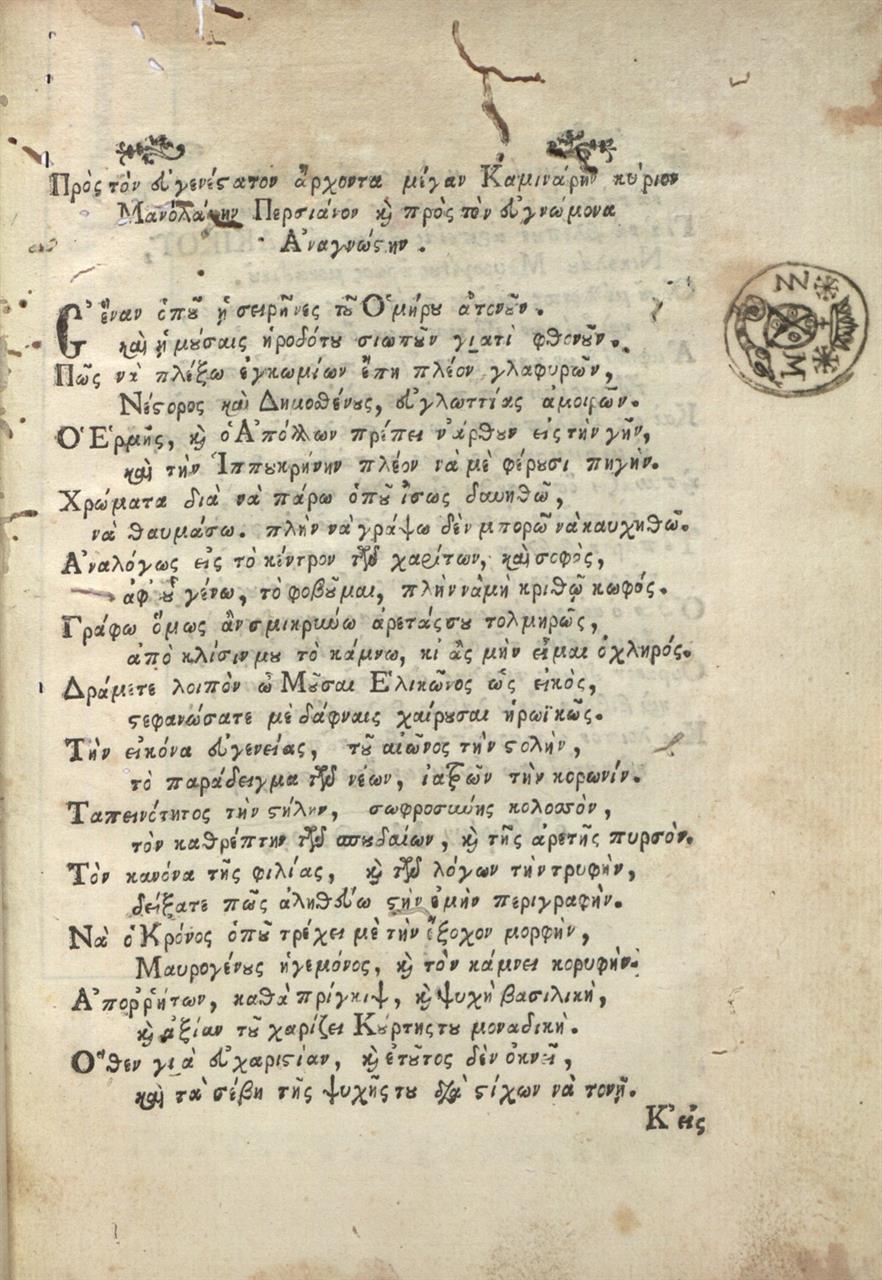 Πρὸς τὸν εὐγενέστατον ἄρχοντα μέγαν Καμινάρην κύριον
Μανολάκην Περσιάνον κ̀ πρὸς τὸν εὐγνώμονα
Ἀναγνώστην.
Σ' ἕναν ὁποῦ ᾑ σειρῆνες τοῦ Ὁμήρου ἀτονοῦν.
καὶ ᾑ μούσαις ἡροδότου σιωποῦν γιατὶ φθονοῦν.
Πῶς νὰ πλέξω ἐγκωμίων ἔπη πλέον γλαφυρῶν,
Νέστορος καὶ Δημοσθένους, εὐγλωττίας ἀμοιρῶν.
Ὁ Ἑρμῆς, κ̀ ὁ Ἀπόλλων πρέπει ν' ἀρθουν εἰς τὴν γῆν,
καὶ τὴν Ἱππουκρήνην πλέον νὰ μὲ φέρουσι πηγήν.
Χρώματα διὰ νὰ πάρω ὁποῦ ἴσως δυνηθῶ,
νὰ θαυμάσω. πλὴν νὰ γράψω δὲν μπορῶ νὰ καυχηθῶ.
Ἀναλόγως εἰς τὸ κέντρον τῶν χαρίτων, καὶ σοφὸς,
ἀφ' οὗ γένω, τὸ φοβοῦμαι, πλὴν νὰ μὴ κριθῶ κωφός.
Γράφω ὅμως ἂν σμικρύνω ἀρετάς σου τολμηρῶς,
ἀπὸ κλίσιν μου τὸ κάμνω, κι ἂς μὴν εἶμαι ὀχληρός.
Δράμετε λοιπὸν ὦ Μοῦσαι Ἑλικῶνος ὡς εἰκὸς,
στεφανώσατε μὲ δάφναις χαίρουσαι ἡρωϊκῶς.
Τὴν εἰκόνα εὐγενείας, τοῦ αἰῶνος τὴν στολὴν,
τὸ παράδειγμα τῶν νέων, ἰατρῶν τὴν κορωνίν.
Ταπεινότητος τὴν στήλην, σωφροσύνης κολοσσὸν,
τὸν καθρέπτην τῶν σπουδαίων, κ̀ τῆς ἀρετῆς πυρσὸν.
Τὸν κανόνα τῆς φιλίας, κ̀ τῶν λόγων τὴν τρυφὴν,
δείξατε πῶς ἀληθεύω στὴν ἐμὴν περιγραφὴν.
Νὰ ὁ Κρόνος ὁποῦ τρέχει μὲ τὴν ἔξοχον μορφὴν,
Μαυρογένους ἡγεμόνος, κ̀ τὸν κάμνει κορυφὴν.
Ἀποῤῥήτων, καθὰ πρίγκιψ, κ̀ ψυχὴ βασιλικὴ,
κ̀ ἀξίαν τοῦ χαρίζει Κούρτης του μοναδικὴ.
Ὅθεν γιὰ εὐχαριστίαν, κ̀ ἐτοῦτος δὲν ὀκνεῖ,
καὶ τὰ σέβη τῆς ψυχῆς του διὰ στίχων νὰ τονῇ.
Κ' εἰς
ΖΖ
Μ